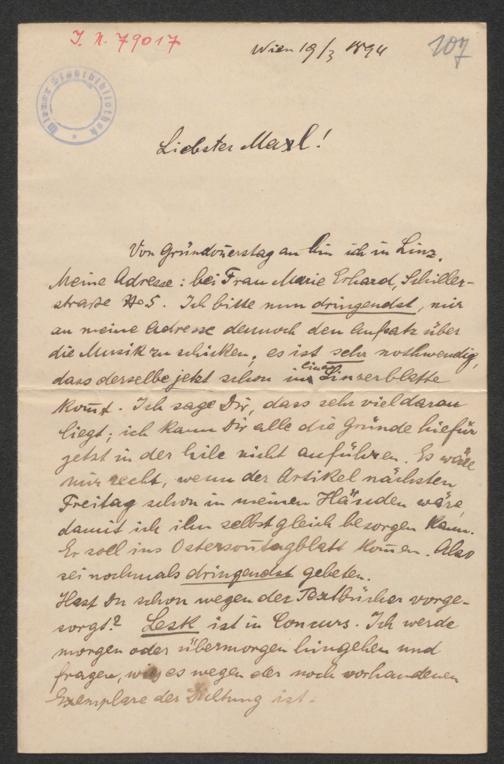 I. N. 79017
Wien 19/3 1894
107
Wiener Stadtbibliothek
Liebster Maxl!
Von Gründonerstag an bin ich in Linz.
Meine Adresse: bei Frau Marie Erhard, Schiller-
straße No 5. Ich bitte nun dringendst, mir
an meine Adresse dennoch den Aufsatz über
die Musik zu schicken, es ist sehr nothwendig,
dass derselbe jetzt schon im Linzerblatte
komt. Ich sage Dir, dass sehr viel daran
liegt; ich kann Dir alle die Gründe hiefür
jetzt in der Eile nicht anführen. Es wäre
mir recht, wenn der Artikel nächsten
Freitag schon in meinen Händen wäre,
damit ich ihn selbst gleich besorgen kann.
Er soll ins Ostersontagblatt komen. Also
sei nochmals dringendst gebeten.
Hast Du schon wegen der Textbücher vorge-
sorgt? Lesk ist in Concurs. Ich werde
morgen oder übermorgen hingehen und
fragen, wie es wegen der noch vorhandenen
Exemplare der Dichtung ist.